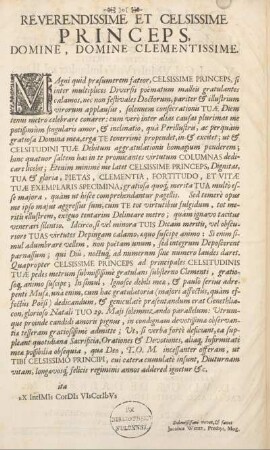 REVERENDISSIME ET CELSISSIME
PRINCEPS,
DOMINE, DOMINE CLEMENTISSIME.
MAgni quid præsumerem fateor, CELSISSIME PRINCEPS, si
inter multiplices Diversi poëmatum mellei gratulantes
calamos, nec non festivales Doctorum, pariter & illustrium
virorum applausus, solemnem consecrationis TUÆ Diem
tenui metro celebrare conarer: cum verò inter alias causas plurimas me
potissimùm singularis amor, & inclinatio, quâ Perillustris, ac perquàm
gratiosa Domina mea, erga TE tenerrimè propendet, in & excitet; ut &
CELSITUDINI TUÆ Debitum aggratulationis homagium penderem;
hinc quatuor saltem has in te prominentes virtutum COLUMNAS dedi-
care licuit; Etenim minimè me latet CELSISSIME PRINCEPS, Dignitas,
TUA & gloria, PIETAS, CLEMENTIA, FORTITUDO, ET VITÆ
TUÆ EXEMPLARIS SPECIMINA,
majora, quàm ut hisce comprehendantur pagellis. Sed temerè opus
me ipso majus aggressus sum, cùm TE tot virtutibus fulgidum, tot me-
ritis illustrem, exiguo tentarim Delineare metro; quàm ignavo tacitus
venerari silentio. Idcirco, si vel minora TUIS Dictum meritis, vel obscu-
riores TUAS virtutes Depingam calamo, æquo suscipe animo: Si enim so-
mul adumbrare vellem, non poëtam unum, sed integrum Deposcerent
parnassum; qui Diù, noctuq; ad numerum sine numero laudes claret.
Quapropter CELSISSIME PRINCEPS ad principales CELSITUDINIS
TUÆ pedes metrum submississimè gratulans substerno Clementi, gratio-
soq, animo suscipe; In simul, Ignosce debili meæ, & paulò serius adre-
penti Musæ, quæ enim, cùm hac gratulatoria (majori affectus, quàm ef-
fectus Poësi) dedicandum, & genetliaco præsentandum erat Genethlia-
con, gloriosæ Natali TUO 29. Maji solemnitatis ando parallelum: Utrum-
que proinde candidi amoris pignus, & condignam devotissimæ observan-
tiæ tesseram gratiosissimè admitte; Ut, si verba fortè desciant, ea sup-
pleant quotidiana Sacrificia, Orationes, & Devotiones, aliaq, Infirmitati
meæ possibilia obsequia, quæ Deo, T.O.M. incessanter offeram, ut
TIBI CELSISSIMO PRINCIPI, cui cætera cumulatè insunt, Diuturnam
vitam, longævosq, felicis regiminis annos addered ignetur &c.
ita
eX IntIMIs CorDIs VIsCerIbVs
EX
BIBLIOTHECA